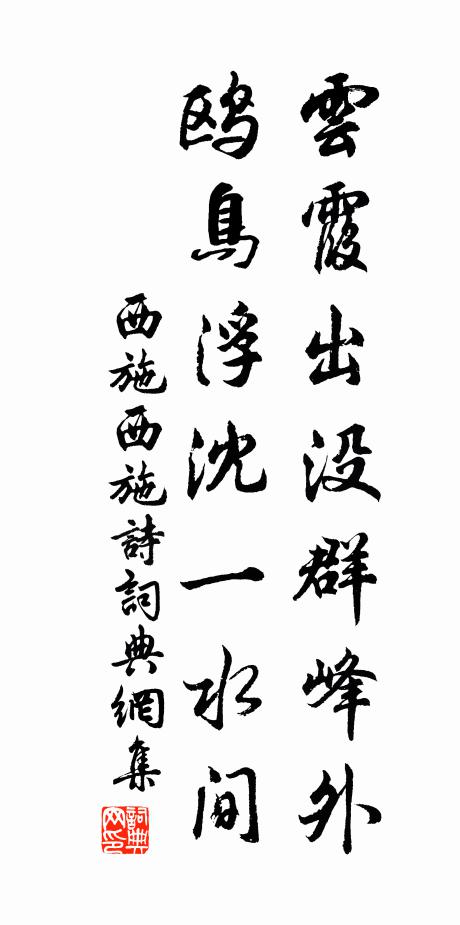 雲霞出没群峰外
鸥鳥浮沈一水間
西施西施詩詞典網集
詞典网印